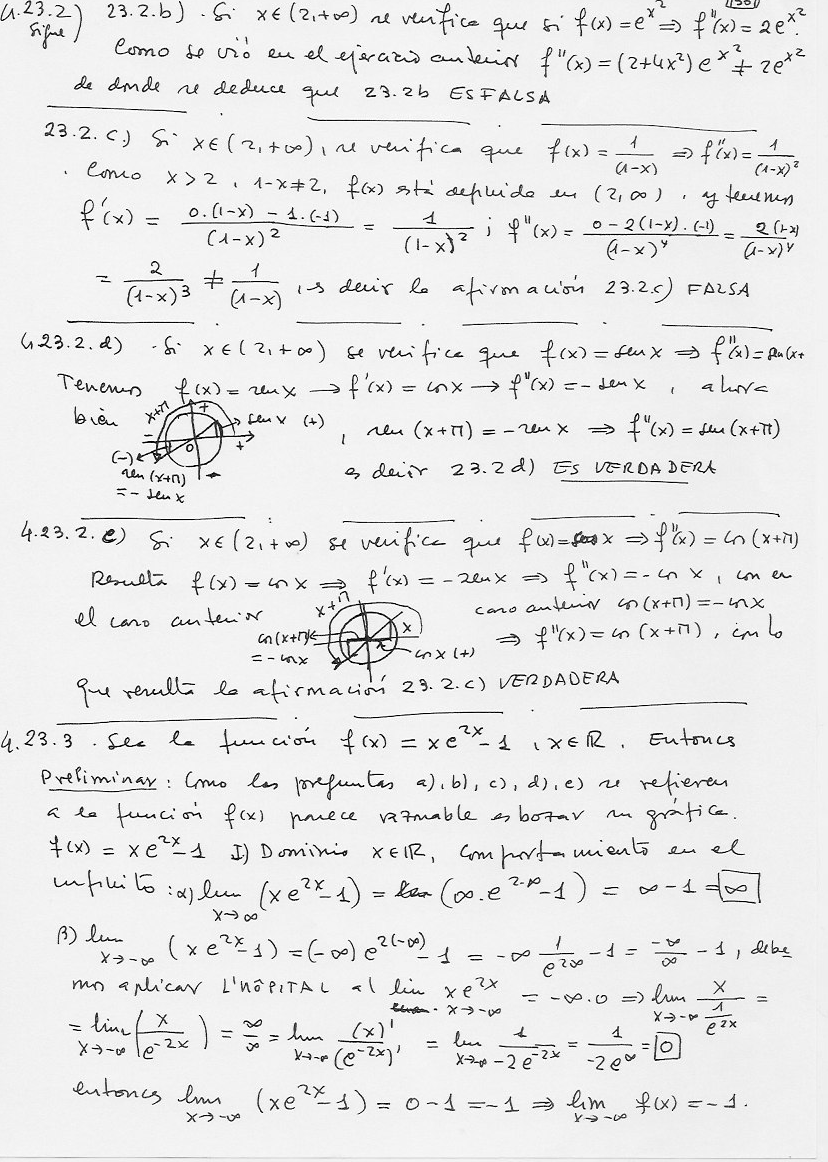 4.23.2) 23.2.b) . Si x∈(2,+∞) se verifica que si f(x)=e^{x^2} ⇒ f''(x)=2e^{x^2}.
Sigue)
Como se vió en el ejercicio anterior f''(x)=(2+4x^2)e^{x^2}≠2e^{x^2}
de donde se deduce que 23.2b ES FALSA
23.2.c.) Si x∈(2,+∞), se verifica que f(x)=1/(1-x) ⇒ f''(x)=1/(1-x)^2
. Como x>2, 1-x≠2, f(x) está definida en (2,∞), y tenemos
f'(x) = (0.(1-x) - 1.(-1))/(1-x)^2 = 1/(1-x)^2 ; f''(x) = (0-2(1-x).(-1))/(1-x)^4 = 2(1-x)/(1-x)^4
= 2/(1-x)^3 ≠ 1/(1-x), es decir la afirmación 23.2.c) FALSA
4.23.2.d) . Si x∈(2,+∞) se verifica que f(x)=sen x ⇒ f''(x)=sen(x+
Tenemos f(x)=sen x → f'(x)=cos x → f''(x)=-sen x, ahora
bién x+π + sen x (+)
, sen(x+π)=-sen x ⇒ f''(x)=sen(x+π)
- 0 +
(-) sen(x+π)
=-sen x
es decir 23.2d) ES VERDADERA
4.23.2.e) Si x∈(2,+∞) se verifica que f(x)=cos x ⇒ f''(x)=cos(x+π)
Resulta f(x)=cos x ⇒ f'(x)=-sen x ⇒ f''(x)=-cos x, con en
el caso anterior x+π x caso anterior cos(x+π)=-cos x
cos(x+π) =-cos x cos x (+) ⇒ f''(x)=cos(x+π), con lo
que resulta la afirmación 23.2.c) VERDADERA
4.23.3 . Sea la función f(x)=xe^{2x}-1, x∈ℝ. Entonces
Preliminar: Como las preguntas a), b), c), d), e) se refieren
a la función f(x) parece razonable esbozar su gráfica.
f(x)=xe^{2x}-1 I) Dominio x∈ℝ, Comportamiento en el
infinito: α) lim x→∞ (xe^{2x}-1) = (∞.e^{2.∞}-1) = ∞-1 = ∞
β) lim x→-∞ (xe^{2x}-1) = (-∞)e^{2(-∞)}-1 = -∞ 1/e^{2∞} -1 = -∞/∞ -1, debe
mos aplicar L'HÔPITAL al lim x→-∞ xe^{2x} = -∞.0 ⇒ lim x→-∞ x/(1/e^{2x}) =
= lim x→-∞ (x/e^{-2x}) = ∞/∞ = lim x→-∞ (x)'/(e^{-2x})' = lim x→-∞ 1/-2e^{-2x} = 1/-2e^∞ = 0
entonces lim x→-∞ (xe^{2x}-1) = 0-1 = -1 ⇒ lim x→-∞ f(x) = -1.